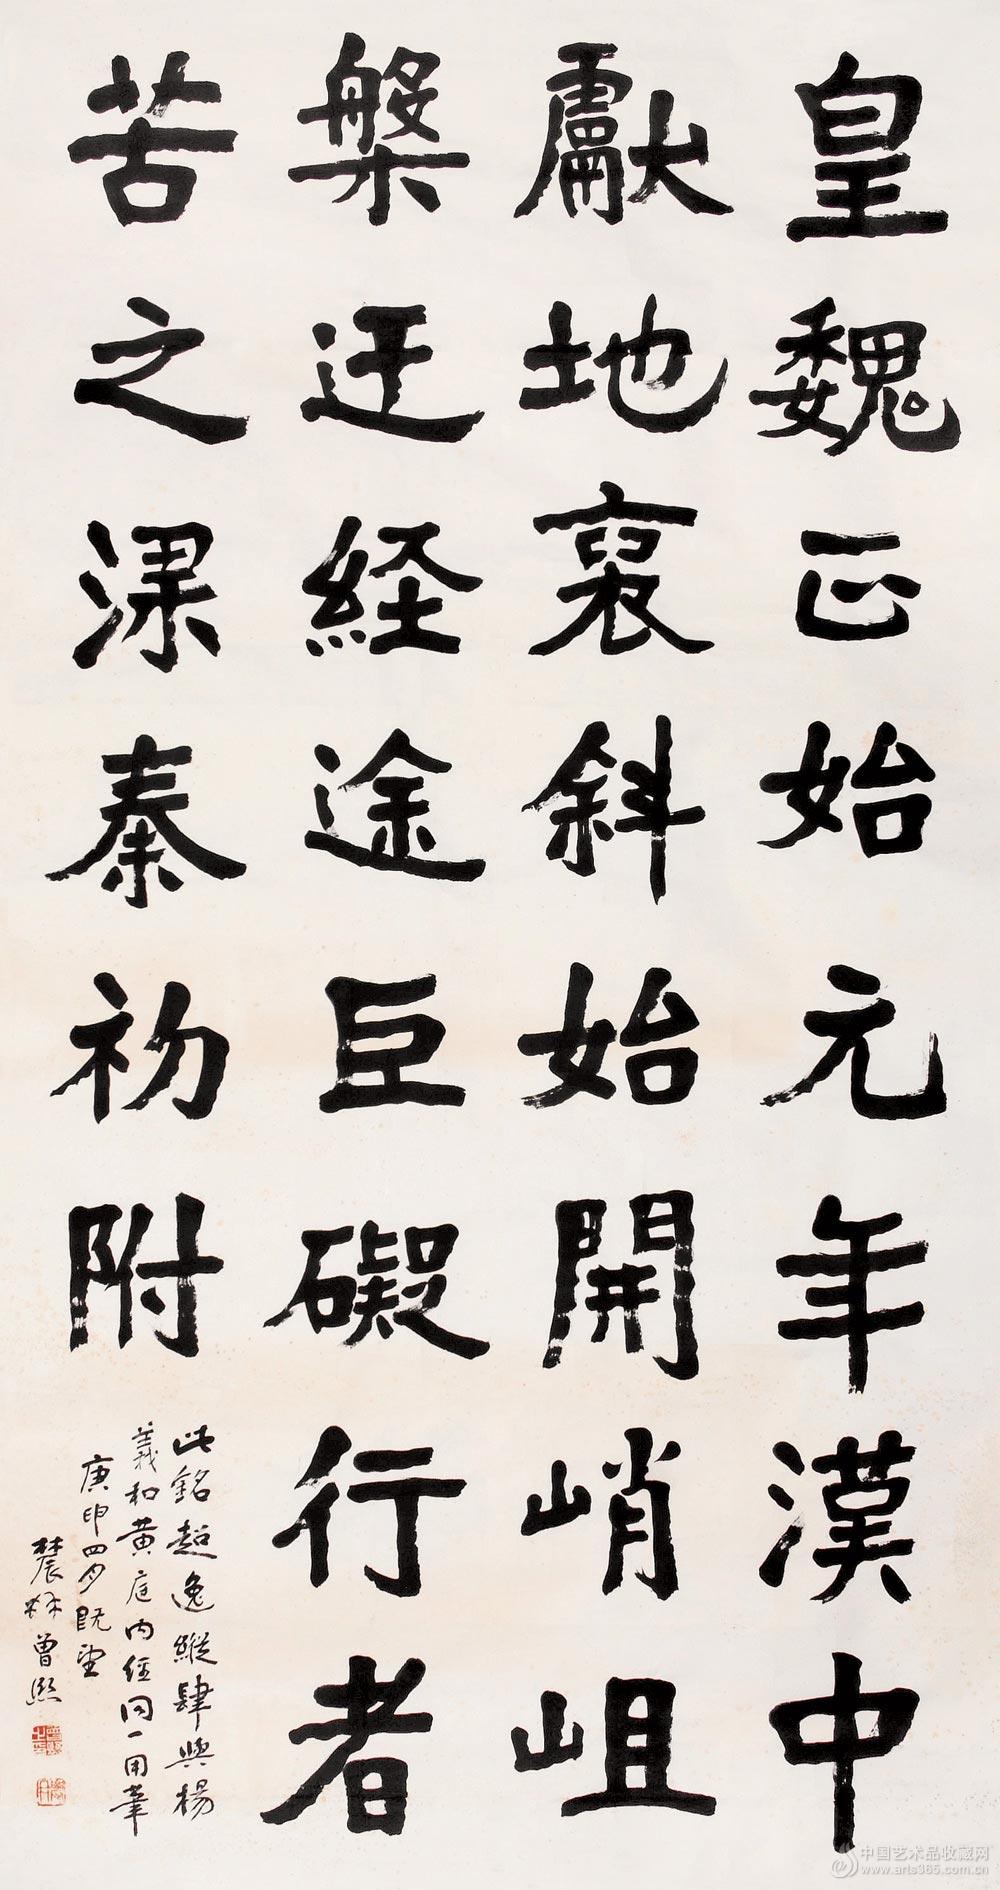 皇魏正始元年漢中
獻地裒斜始開峭岨
槃迂経途巨礙行者
苦之梁秦初附
此銘超逸縱肆與楊
羲和黄庭内經同一用筆
庚申四月既望
農髯曾熙
中国艺术品收藏网
www.arts365.com.cn